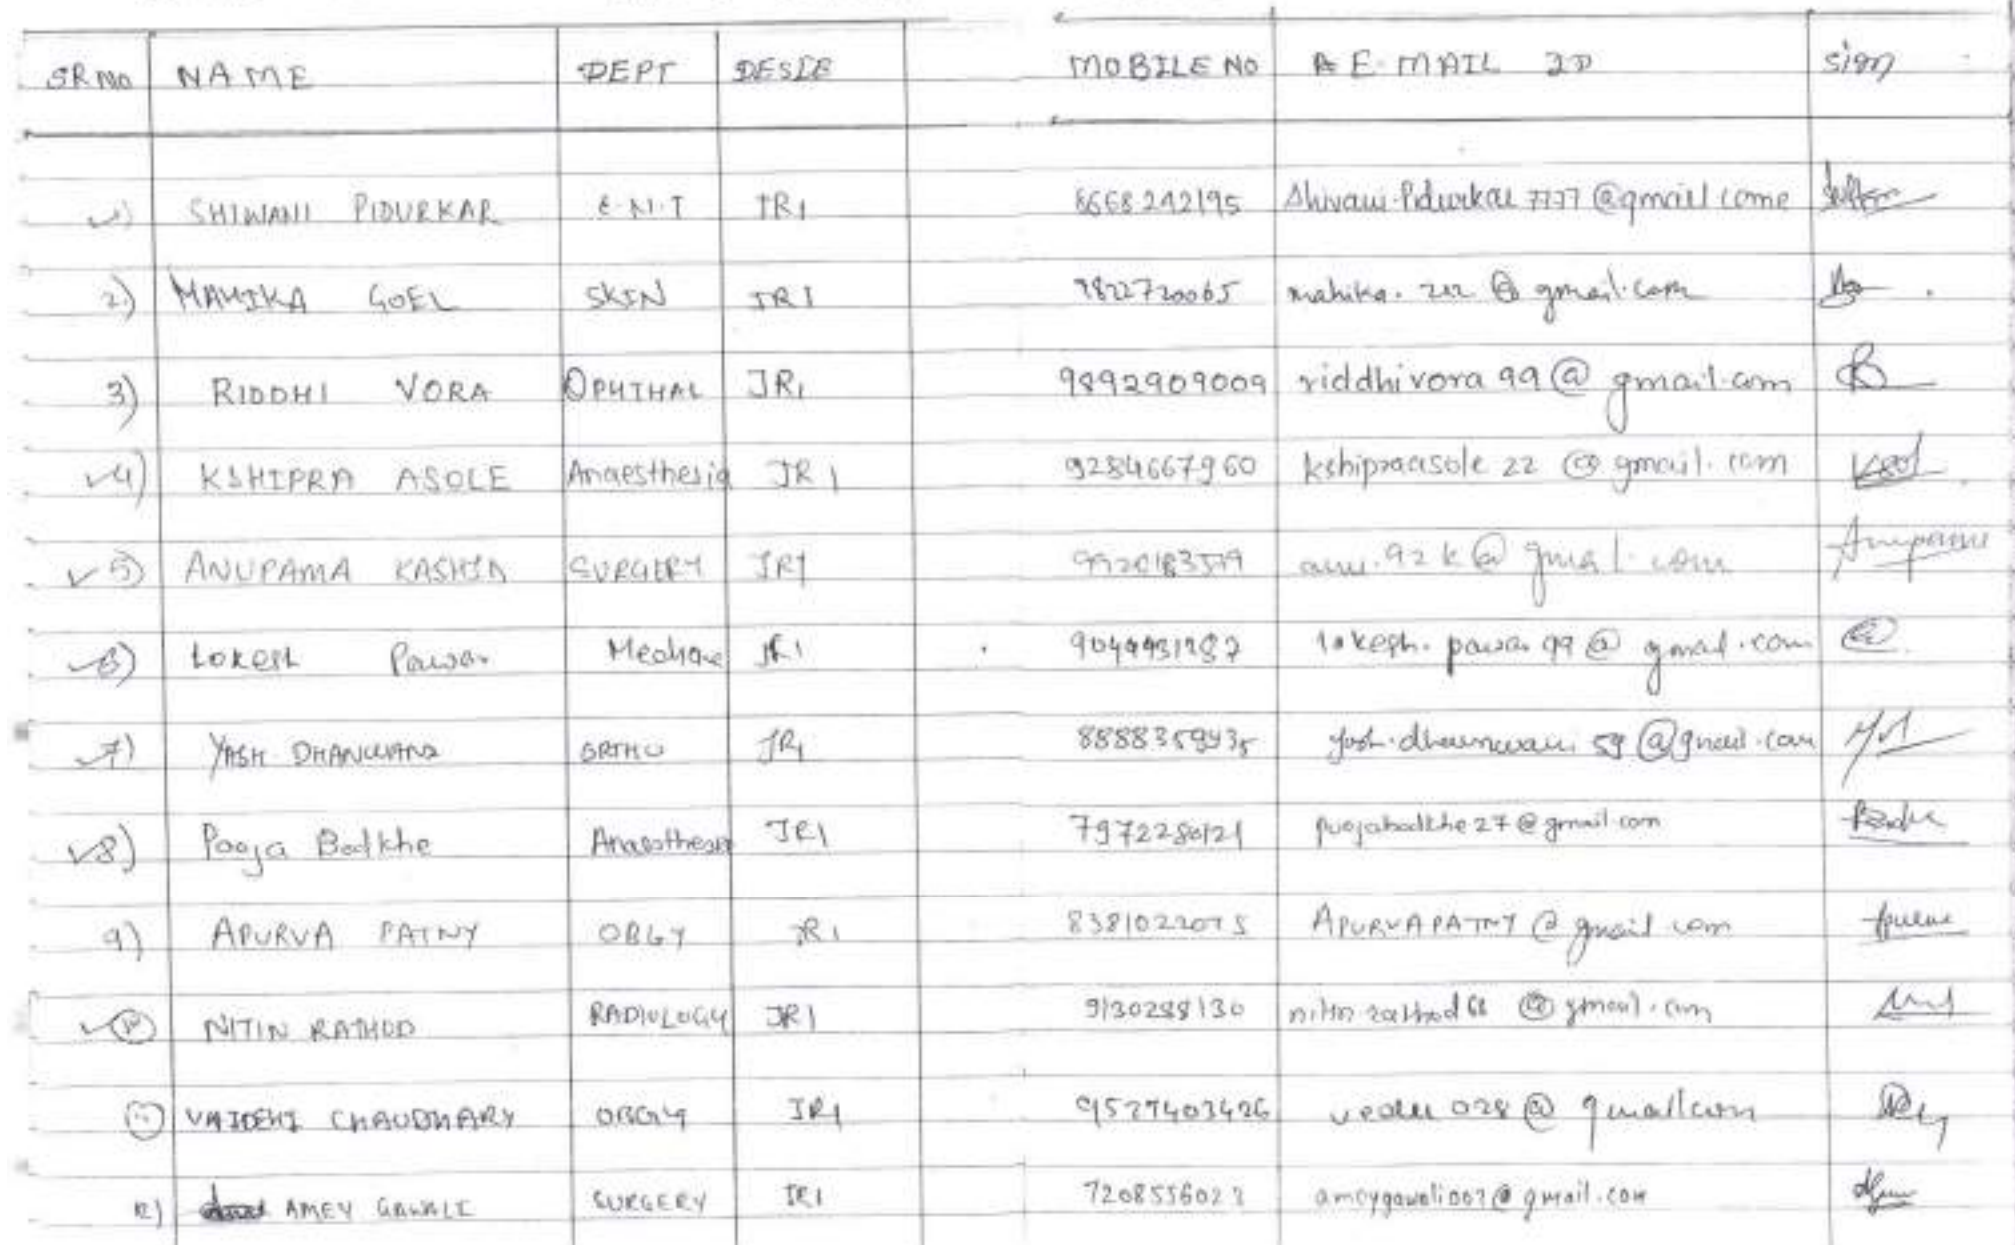 SR No NAME DEPT DESIE MOBILE NO E-MAIL ID Sign
1) SHIWANI PIDURKAR E.N.T JR1 8668242195 Shivani.Pidurkar7777@gmail.come
2) MAHIKA GOEL SKIN JR1 9822720065 mahika.212@gmail.com
3) RIDDHI VORA OPHTHAL JR1 9892909009 riddhivora99@gmail.com
4) KSHIPRA ASOLE Anaesthesia JR1 9284667960 kshipraasole22@gmail.com
5) ANUPAMA SURGERY JR1 anu.92k@gmail.com Anupama
6) Lokesh Pawar JR1 lokesh.pawar99@gmail.com
7) YASH ORTHO JR1 8888359935
8) Pooja Badkhe Anaesthesia JR1 7972280121 poojabadkhe27@gmail.com
9) APURVA PATNY OBGY JR1 8381022075 APURVAPATNY@gmail.com
10) NITIN RATHOD RADIOLOGY JR1 9130288130 nitinrathod68@gmail.com
11) VAIDEHI CHAUDHARY OBGY JR1 9527403426
12) AMEY GAWALI SURGERY JR1 ameygawali007@gmail.com